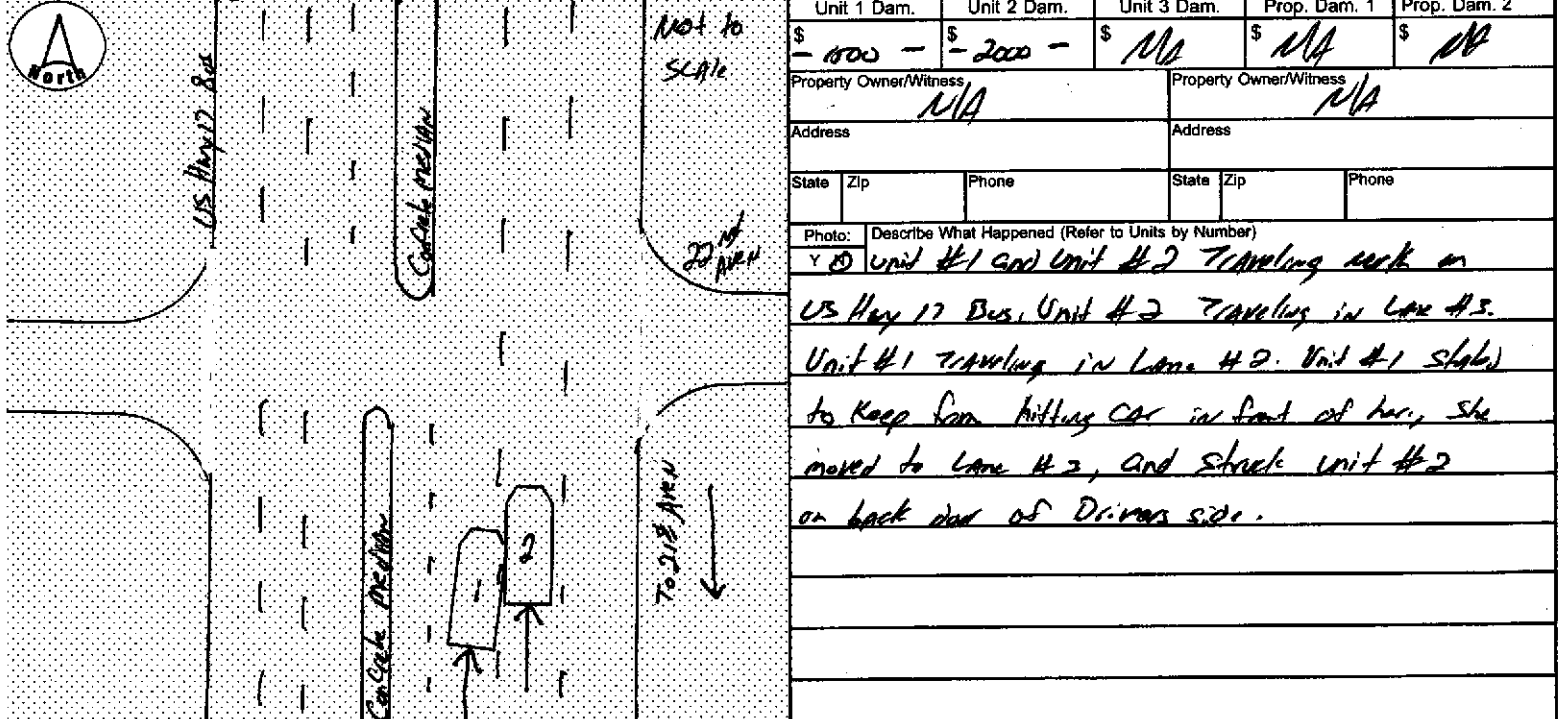 North
US Hwy 17 Bus
Concrete median
Not to
SCAle
22nd
AveN
Concrete median
1
2
To 21st AveN
Unit 1 Dam.
Unit 2 Dam.
Unit 3 Dam.
Prop. Dam. 1
Prop. Dam. 2
$ - 1500 -
$ - 2000 -
$ N/A
$ N/A
$ N/A
Property Owner/Witness N/A
Property Owner/Witness N/A
Address
Address
State Zip Phone
State Zip Phone
Photo: Describe What Happened (Refer to Units by Number)
Y N Unit #1 and Unit #2 Traveling north on
US Hwy 17 Bus. Unit #2 Traveling in Lane #3.
Unit #1 Traveling in Lane #2. Unit #1 Stated
to Keep from hitting CAr in front of her, She
moved to Lane #3, and Struck unit #2
on back door of Drivers side.